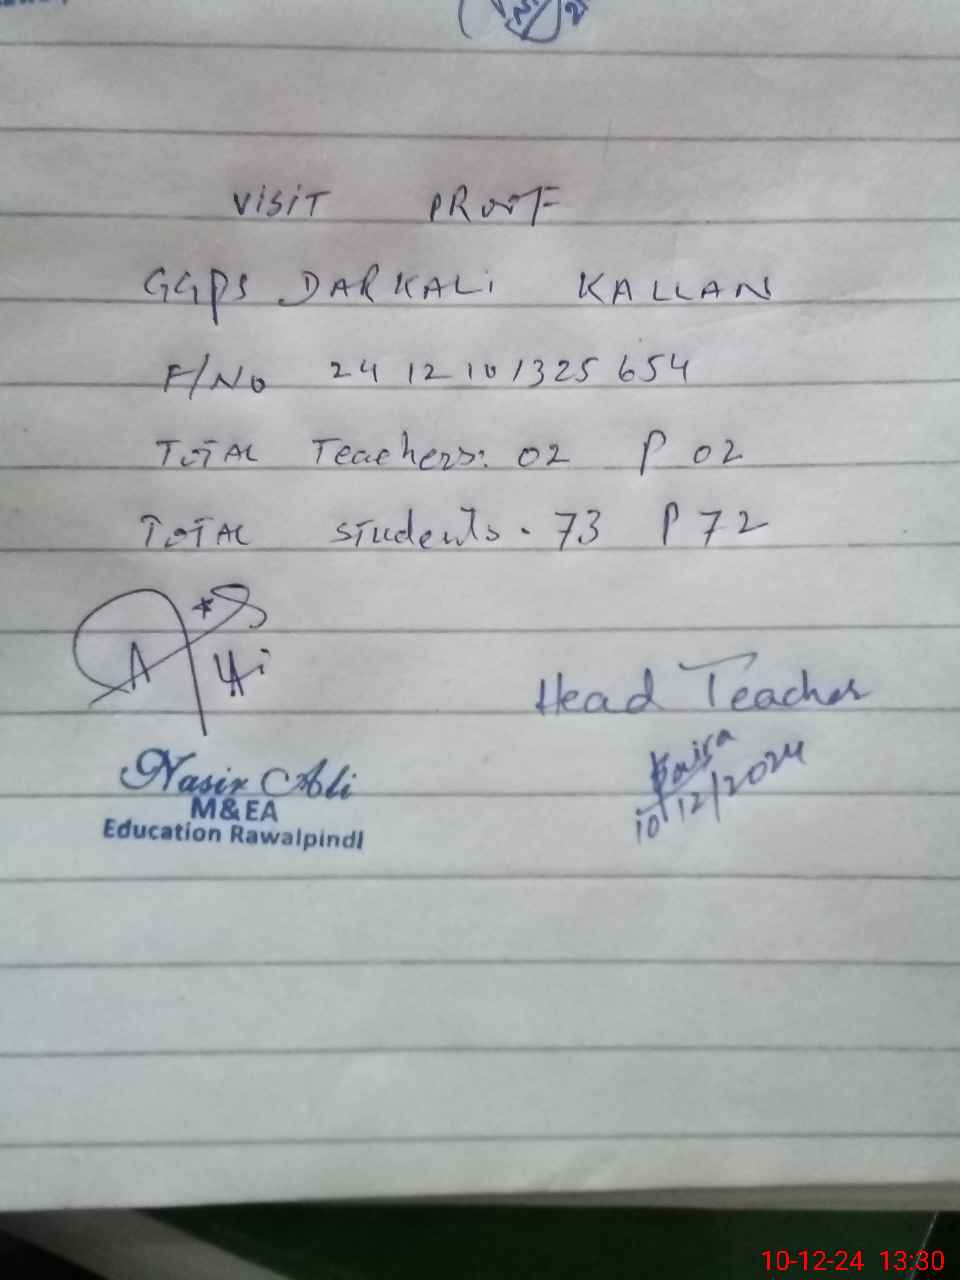 VISIT PROOF
GGPS DARKALI KALLAN
F/No 24 12 10 1325 654
TOTAL Teachers: 02 P 02
TOTAL students. 73 P 72
Head Teacher
10/12/2024
Nasir Ali
M&EA
Education Rawalpindi
10-12-24 13:30